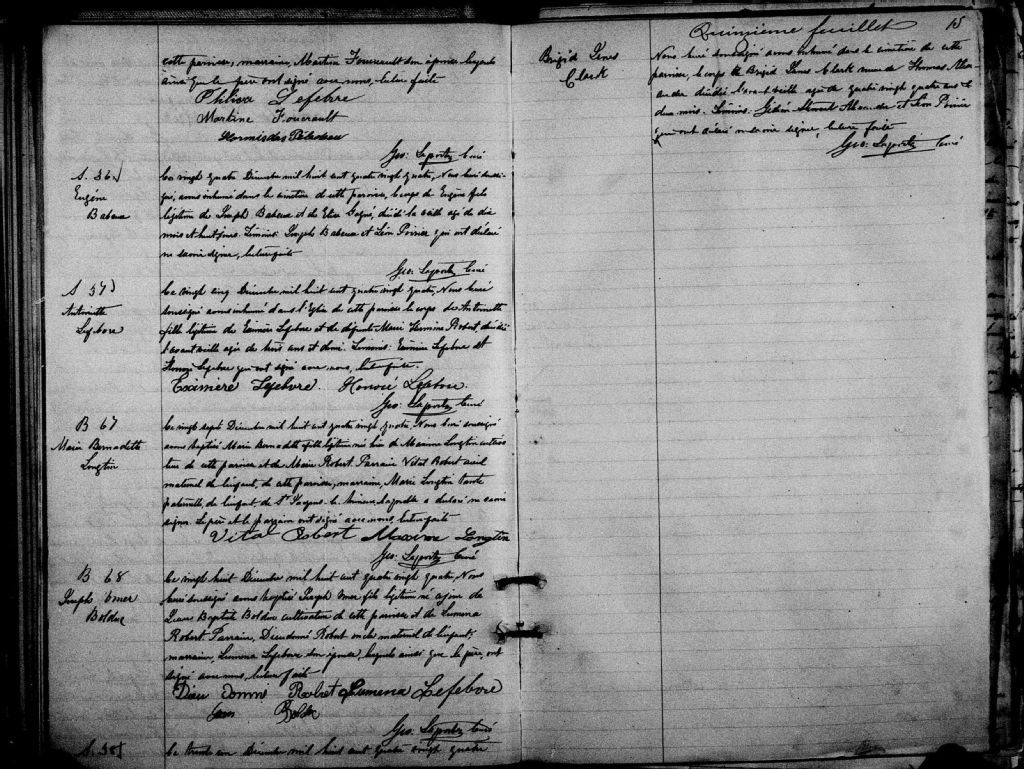 cette paroisse, marraine, Martine Foucrault son épouse lesquels
ainsi que le père ont signé avec nous, lecture faite
Philias Lefebvre
Martine Foucrault
Hormisdas
Geo: Laporte Curé
S. 36
Eugène
Babeux
Ce vingt quatre Décembre mil huit cent quatre vingt quatre, Nous Curé soussi-
gné, avons inhumé dans le cimetière de cette paroisse, le corps de Eugène fils
légitime de Joseph Babeux et de Elise Gagné, décédé la veille agé de dix
mois et huit jours. Témoins: Joseph Babeux et Léon Poirier qui ont déclaré
ne savoir signer, lecture faite
Geo: Laporte Curé
S 37
Antoinette
Lefebvre
Ce vingt cinq Décembre mil huit cent quatre vingt quatre, Nous Curé
soussigné avons inhumé dans l'Eglise de cette paroisse le corps de Antoinette
fille légitime de Exiniere Lefebvre et de défunte Marie Hermine Robert, décédée
l'avant veille agée de trois ans et demi. Témoins: Exiniere Lefebvre et
Honoré Lefebvre qui ont signé avec nous, lecture faite.
Eximiere Lefebvre. Honoré Lefebvre
Geo: Laporte Curé
B 67
Marie Bernadette
Longtin
Ce vingt sept Décembre mil huit cent quatre vingt quatre, Nous Curé soussigné
avons baptisé Marie Bernadette fille légitime née hier de Maxime Longtin cultiva-
teur de cette paroisse et de Marie Robert. Parrain Vital Robert aieul
maternel de l'enfant, de cette paroisse, marraine, Marie Longtin tante
paternelle de l'enfant, de St Jacques le Mineur, laquelle a déclaré ne savoir
signer. Le père et le parrain ont signé avec nous, lecture faite
Vital Robert Maxime Longtin
Geo: Laporte Curé
B 68
Joseph Omer
Bolduc
Ce vingt huit Décembre mil huit cent quatre vingt quatre, Nous
Curé soussigné avons baptisé Joseph Omer fils légitime né ce jour de
Jean Baptiste Bolduc cultivateur de cette paroisse et de Lumena
Robert. Parrain, Dieudonné Robert oncle maternel de l'enfant,
marraine, Lumena Lefebvre son épouse, lesquels ainsi que le père, ont
signé avec nous, lecture faite
Dieu donné Robert Lumena Lefebvre
Geo: Laporte Curé
S. 38
Ce trente un Décembre mil huit cent quatre vingt quatre
Quinzième feuillet 15
Brigid Jones
Clerk
Nous Curé soussigné avons inhumé dans le cimetière de cette
paroisse, le corps de Brigid Jones Clerk veuve de Thomas
décédée l'avant veille agée de quatre vingt quatre ans et
deux mois. Témoins. Gédéon et Léon Poirier
qui ont déclaré ne savoir signer, lecture faite
Geo: Laporte Curé